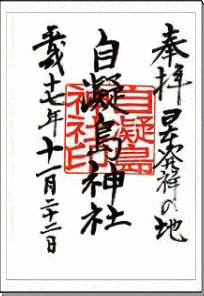 奉拝 日本発祥の地
自凝島神社
自凝島
神社印
平成十七年十一月二十二日